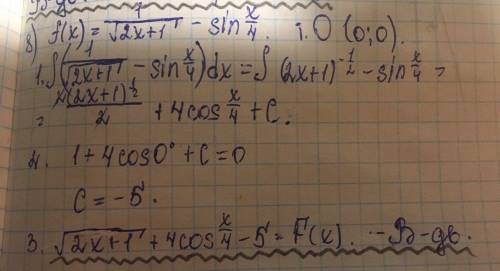 8) f(x) = 1/√(2x+1) − sin x/4. т. O (0;0).
1. ∫(1/√(2x+1) − sin x/4)dx = ∫(2x+1)^(-1/2) − sin x/4 =
= 2(2x+1)^(1/2)/2 + 4cos x/4 + C.
2. 1+4cos0° + C = 0
C = −5.
3. √(2x+1) + 4cos x/4 − 5 = F(x). − В-дь.